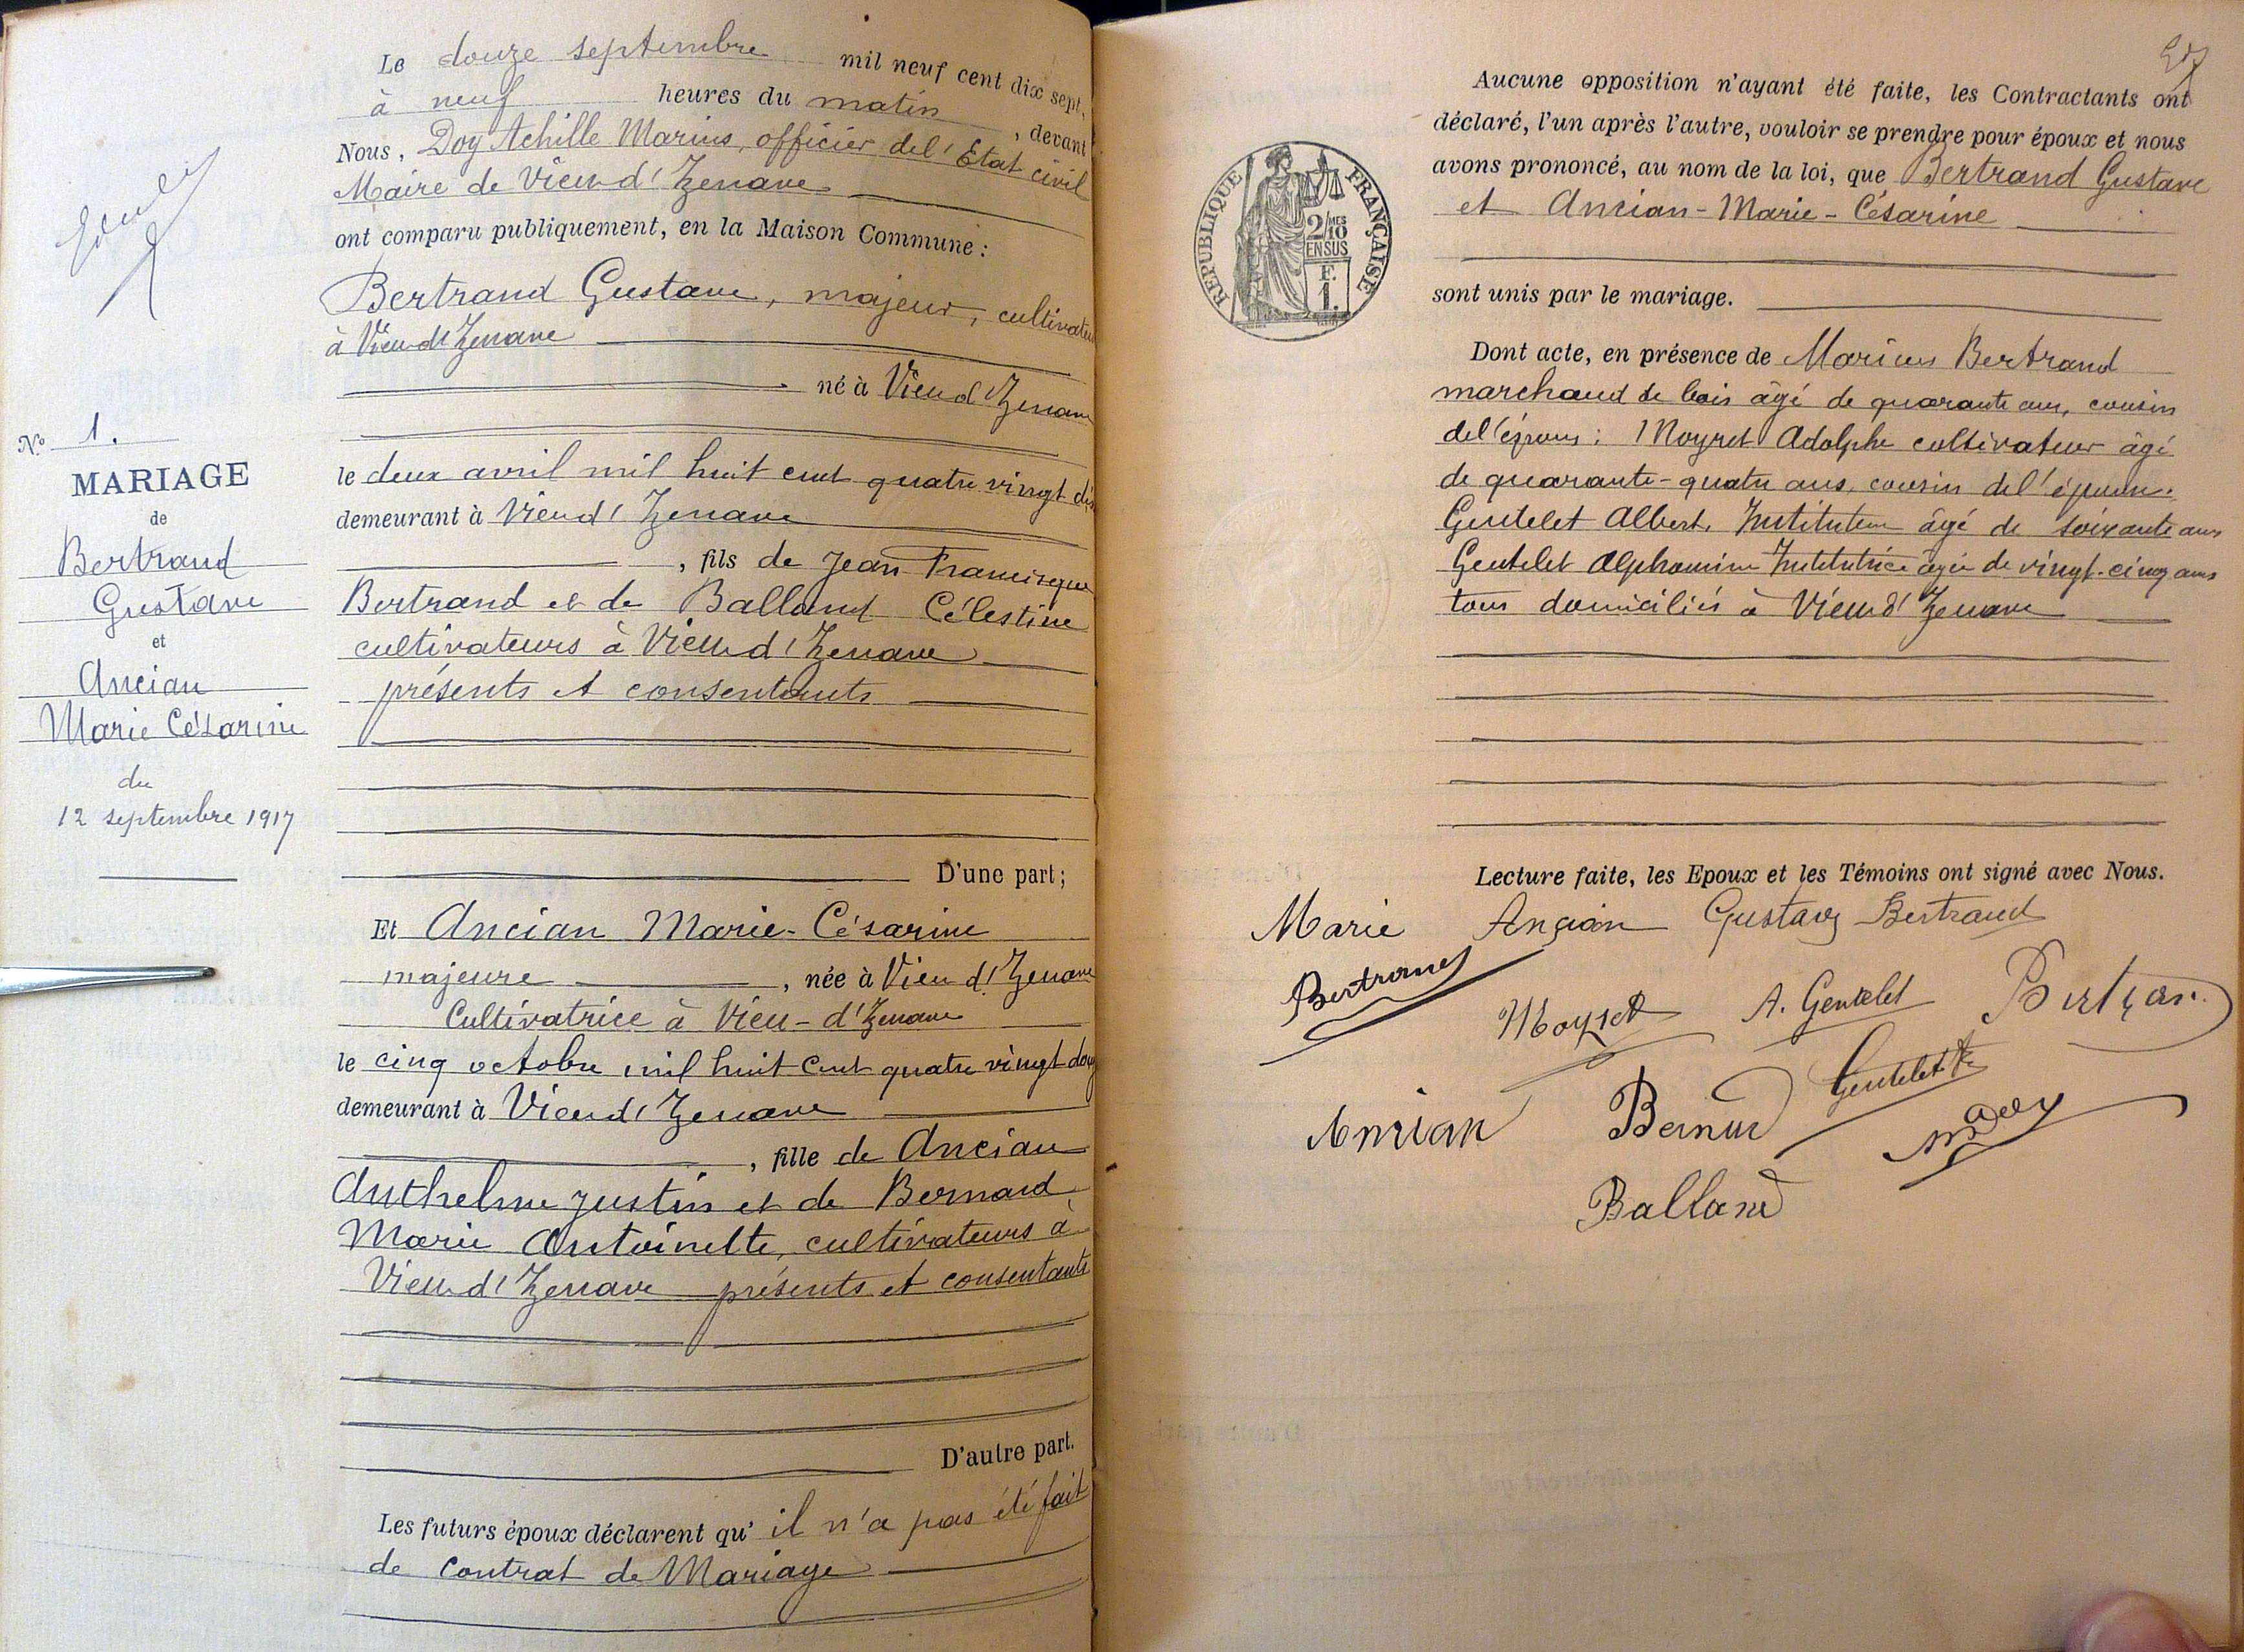 Le douze septembre mil neuf cent dix sept,
à neuf heures du matin, devant
Nous, Doy Achille Marius, officier de l'Etat civil
Maire de Vieu d'Izenave
ont comparu publiquement, en la Maison Commune :
Bertrand Gustave, majeur, cultivateur
à Vieu d'Izenave
né à Vieu d'Izenave
le deux avril mil huit cent quatre vingt dix
demeurant à Vieu d'Izenave
, fils de Jean Francisque
Bertrand et de Balland Célestine
cultivateurs à Vieu d'Izenave
présents et consentants
D'une part ;
Et Ancian Marie-Césarine
majeure, née à Vieu d'Izenave
Cultivatrice à Vieu-d'Izenave
le cinq octobre mil huit cent quatre vingt douze
demeurant à Vieu d'Izenave
, fille de Ancian
Anthelme Justin et de Bernard
Marie Antoinette, cultivateurs à
Vieu d'Izenave présents et consentants
D'autre part.
Les futurs époux déclarent qu'il n'a pas été fait
de contrat de Mariage
N° 1.
MARIAGE
de
Bertrand
Gustave
et
Ancian
Marie Césarine
du
12 septembre 1917
Aucune opposition n'ayant été faite, les Contractants ont
déclaré, l'un après l'autre, vouloir se prendre pour époux et nous
avons prononcé, au nom de la loi, que Bertrand Gustave
et Ancian-Marie-Césarine
sont unis par le mariage.
Dont acte, en présence de Marius Bertrand
marchand de bois âgé de quarante ans, cousin
de l'époux ; Moyret Adolphe cultivateur âgé
de quarante-quatre ans, cousin de l'épouse.
Gentelet Albert, Instituteur âgé de soixante ans
Gentelet Alphonsine Institutrice âgée de vingt-cinq ans
tous domiciliés à Vieu d'Izenave
REPUBLIQUE FRANÇAISE
2/10 MES
EN SUS
F.
1.
Lecture faite, les Epoux et les Témoins ont signé avec Nous.
Marie Ancian Gustave Bertrand
Bertrand
Moyret A. Gentelet
Ancian Gentelet
Balland